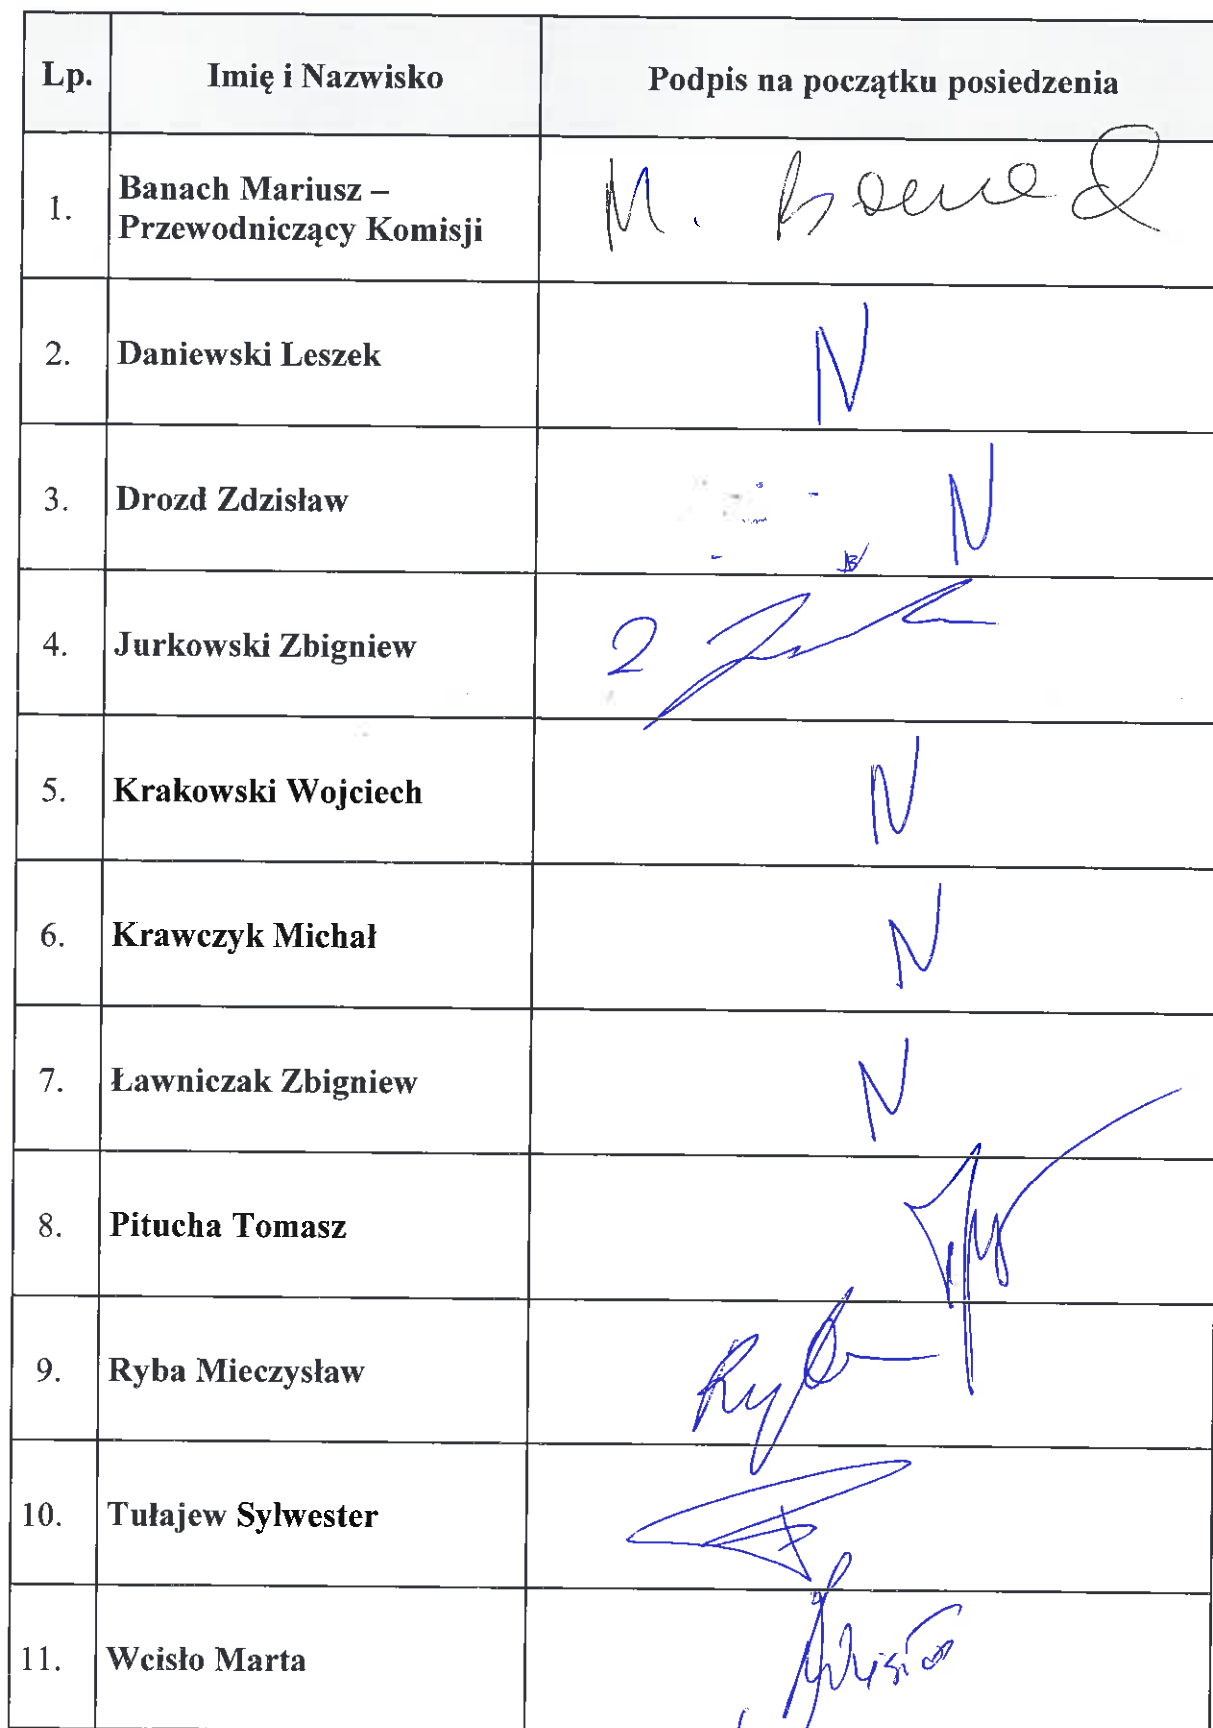 Lp. Imię i Nazwisko Podpis na początku posiedzenia
1. Banach Mariusz –
Przewodniczący Komisji
M. Banach
2. Daniewski Leszek N
3. Drozd Zdzisław N
4. Jurkowski Zbigniew
5. Krakowski Wojciech N
6. Krawczyk Michał N
7. Ławniczak Zbigniew N
8. Pitucha Tomasz
9. Ryba Mieczysław Ryba
10. Tułajew Sylwester
11. Wcisło Marta